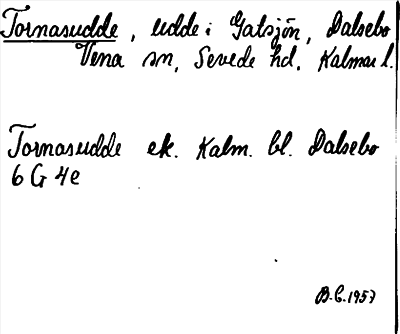 Tornasudde, udde i Gatsjön, Dalsebo
Vena sn, Sevede hd, Kalmar l.
Tornasudde ek. Kalm. bl. Dalsebo
6 G 4e
B.C. 1957